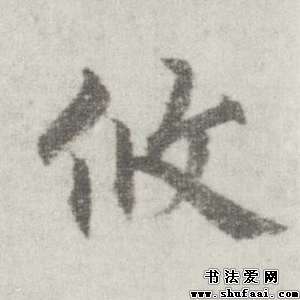 攸
书法爱网
www.shufaai.com